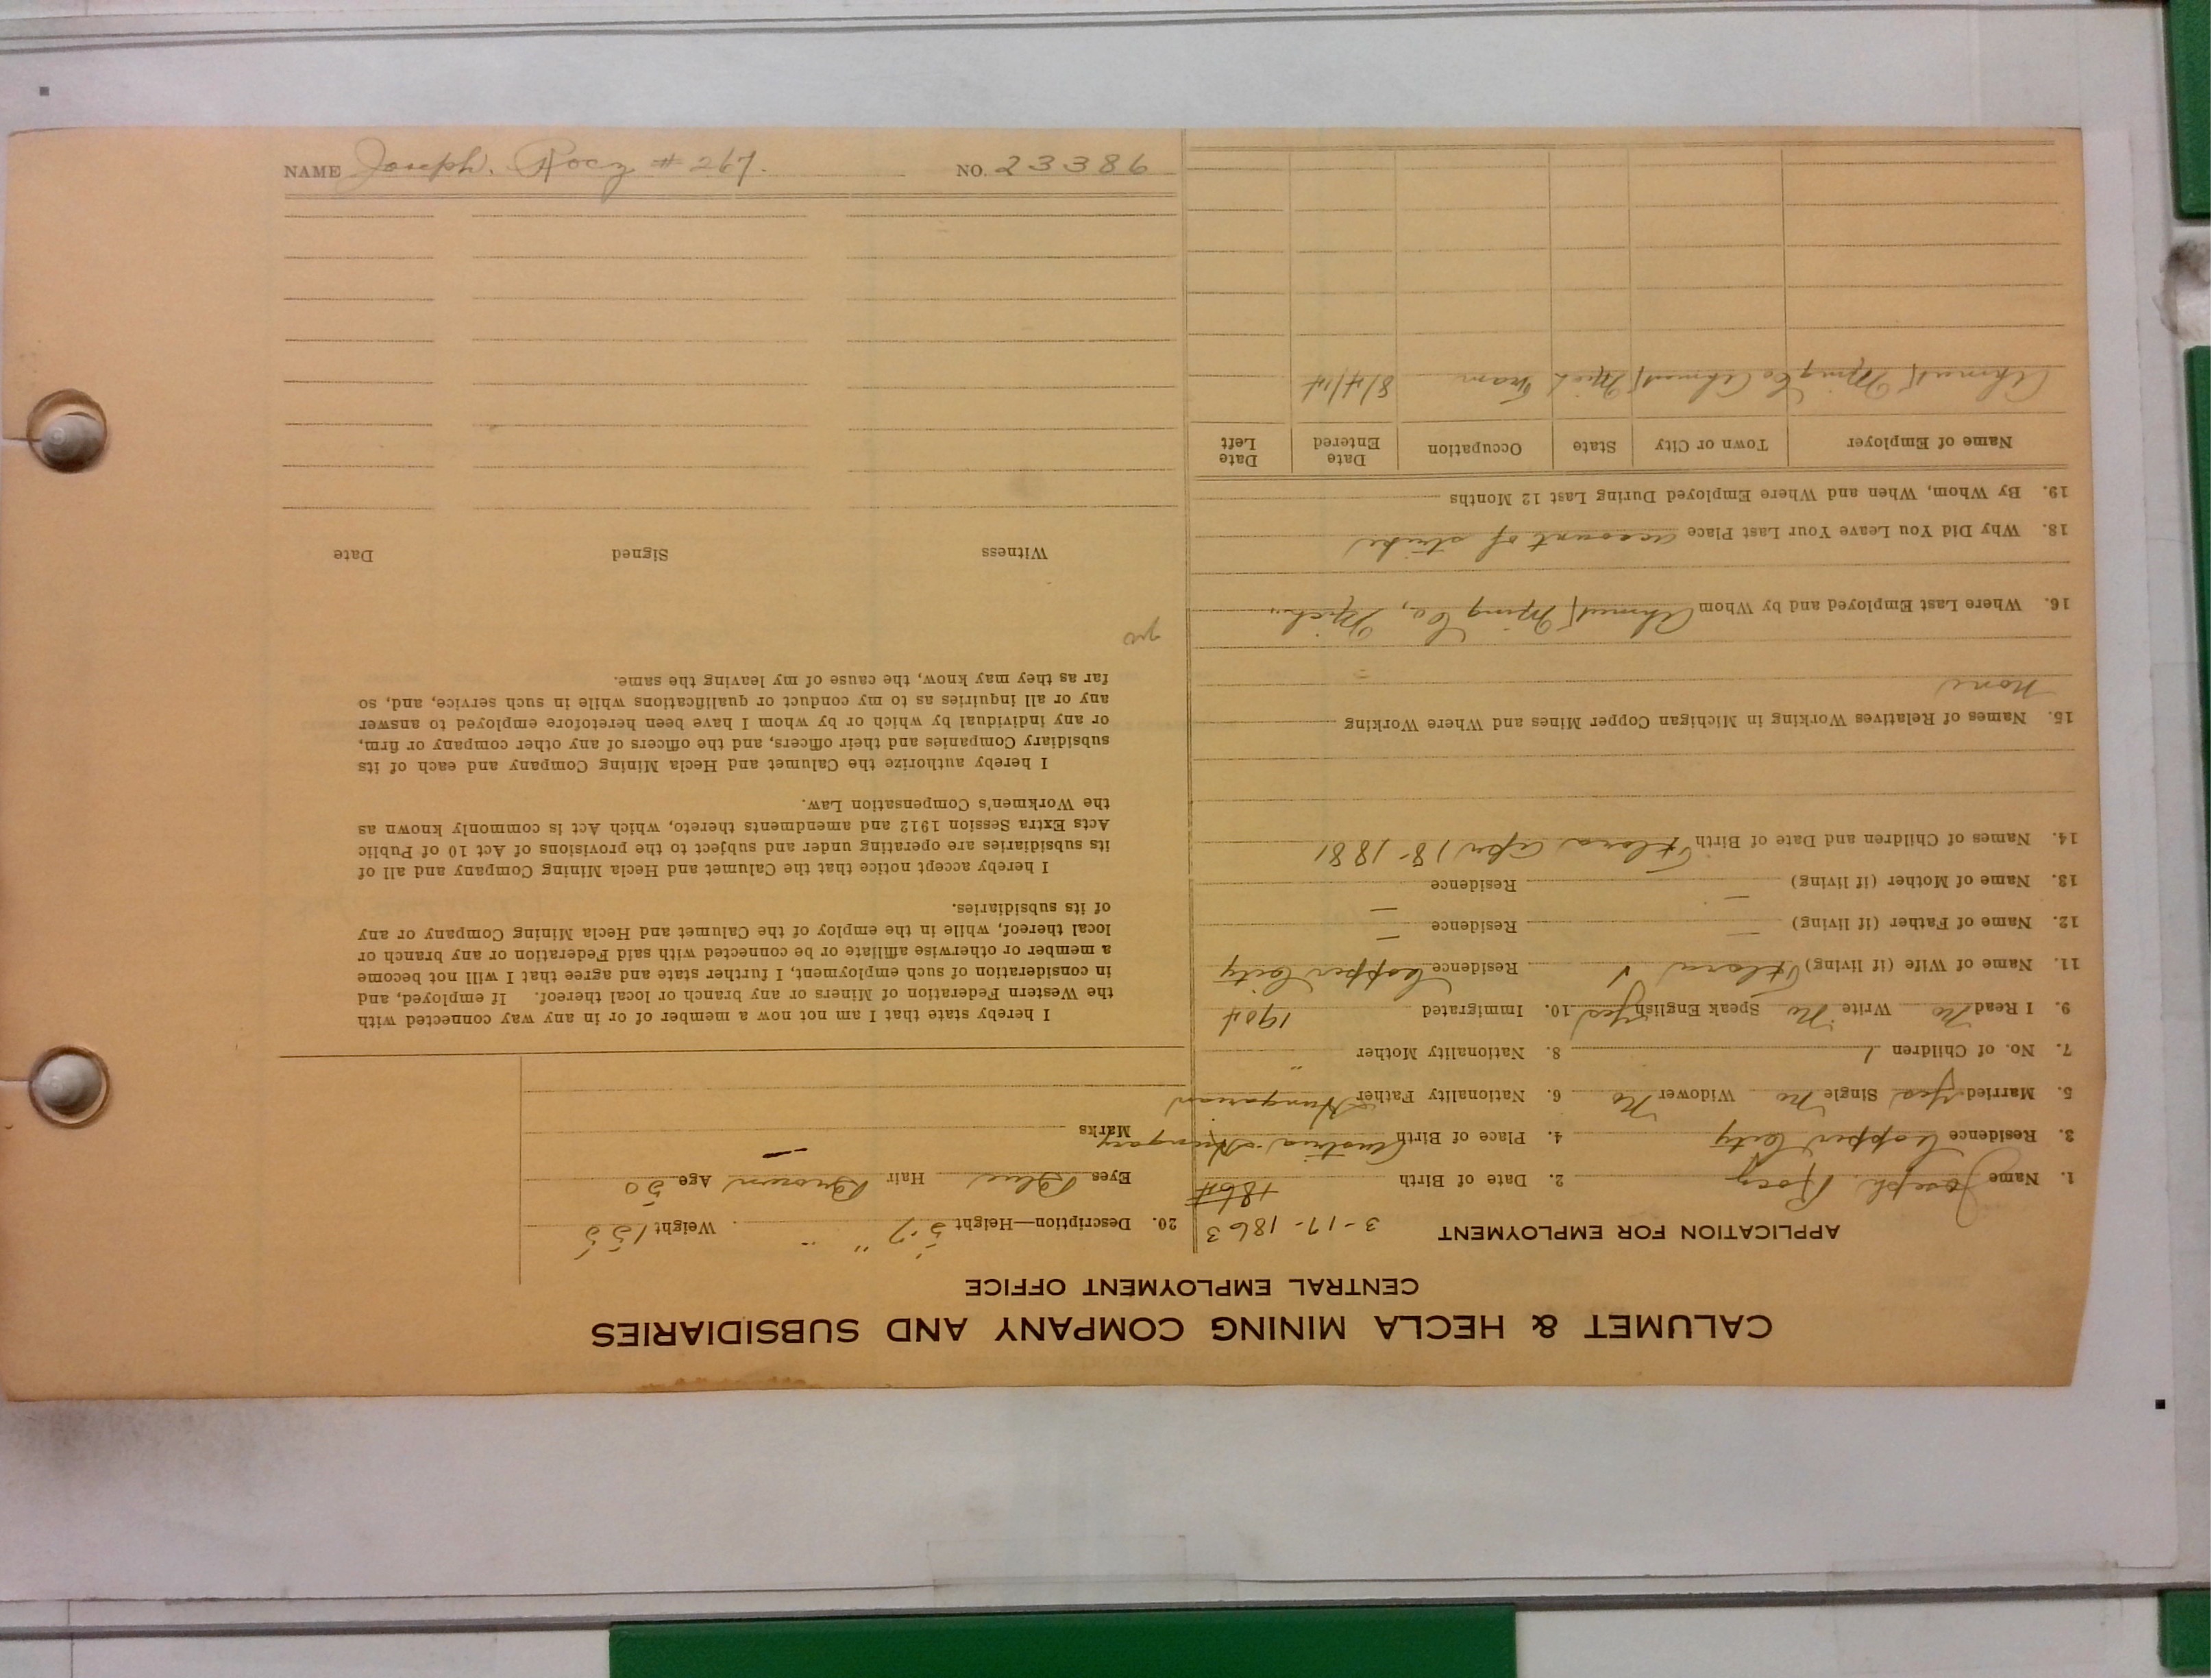 NAME Joseph. Rocz # 267. NO. 23386
CALUMET & HECLA MINING COMPANY AND SUBSIDIARIES
CENTRAL EMPLOYMENT OFFICE
APPLICATION FOR EMPLOYMENT 3-17-1863
1. Name Joseph. Rocz 2. Date of Birth 1864
3. Residence Copper City 4. Place of Birth Austria-Hungary
5. Married Yes Single No Widower No 6. Nationality Father Hungarian
7. No. of Children 1 8. Nationality Mother "
9. I Read No Write No Speak English Yes 10. Immigrated 1904
11. Name of Wife (if living) Flora Residence Copper City
12. Name of Father (if living) — Residence —
13. Name of Mother (if living) — Residence —
14. Names of Children and Date of Birth Flora Apr 18-1881
15. Names of Relatives Working in Michigan Copper Mines and Where Working
None
16. Where Last Employed and by Whom Ahmeek Mining Co, Mich.
18. Why Did You Leave Your Last Place account of strike
19. By Whom, When and Where Employed During Last 12 Months
Name of Employer Town or City State Occupation Date Entered Date Left
Ahmeek Mining Co Ahmeek Mich Tram 8/4/14
20. Description—Height 5'7" Weight 155
Eyes Blue Hair Brown Age 50
Marks —
I hereby state that I am not now a member of or in any way connected with
the Western Federation of Miners or any branch or local thereof. If employed, and
in consideration of such employment, I further state and agree that I will not become
a member or otherwise affiliate or be connected with said Federation or any branch or
local thereof, while in the employ of the Calumet and Hecla Mining Company or any
of its subsidiaries.
I hereby accept notice that the Calumet and Hecla Mining Company and all of
its subsidiaries are operating under and subject to the provisions of Act 10 of Public
Acts Extra Session 1912 and amendments thereto, which Act is commonly known as
the Workmen's Compensation Law.
I hereby authorize the Calumet and Hecla Mining Company and each of its
subsidiary Companies and their officers, and the officers of any other company or firm,
or any individual by which or by whom I have been heretofore employed to answer
any or all inquiries as to my conduct or qualifications while in such service, and, so
far as they may know, the cause of my leaving the same.
Witness Signed Date